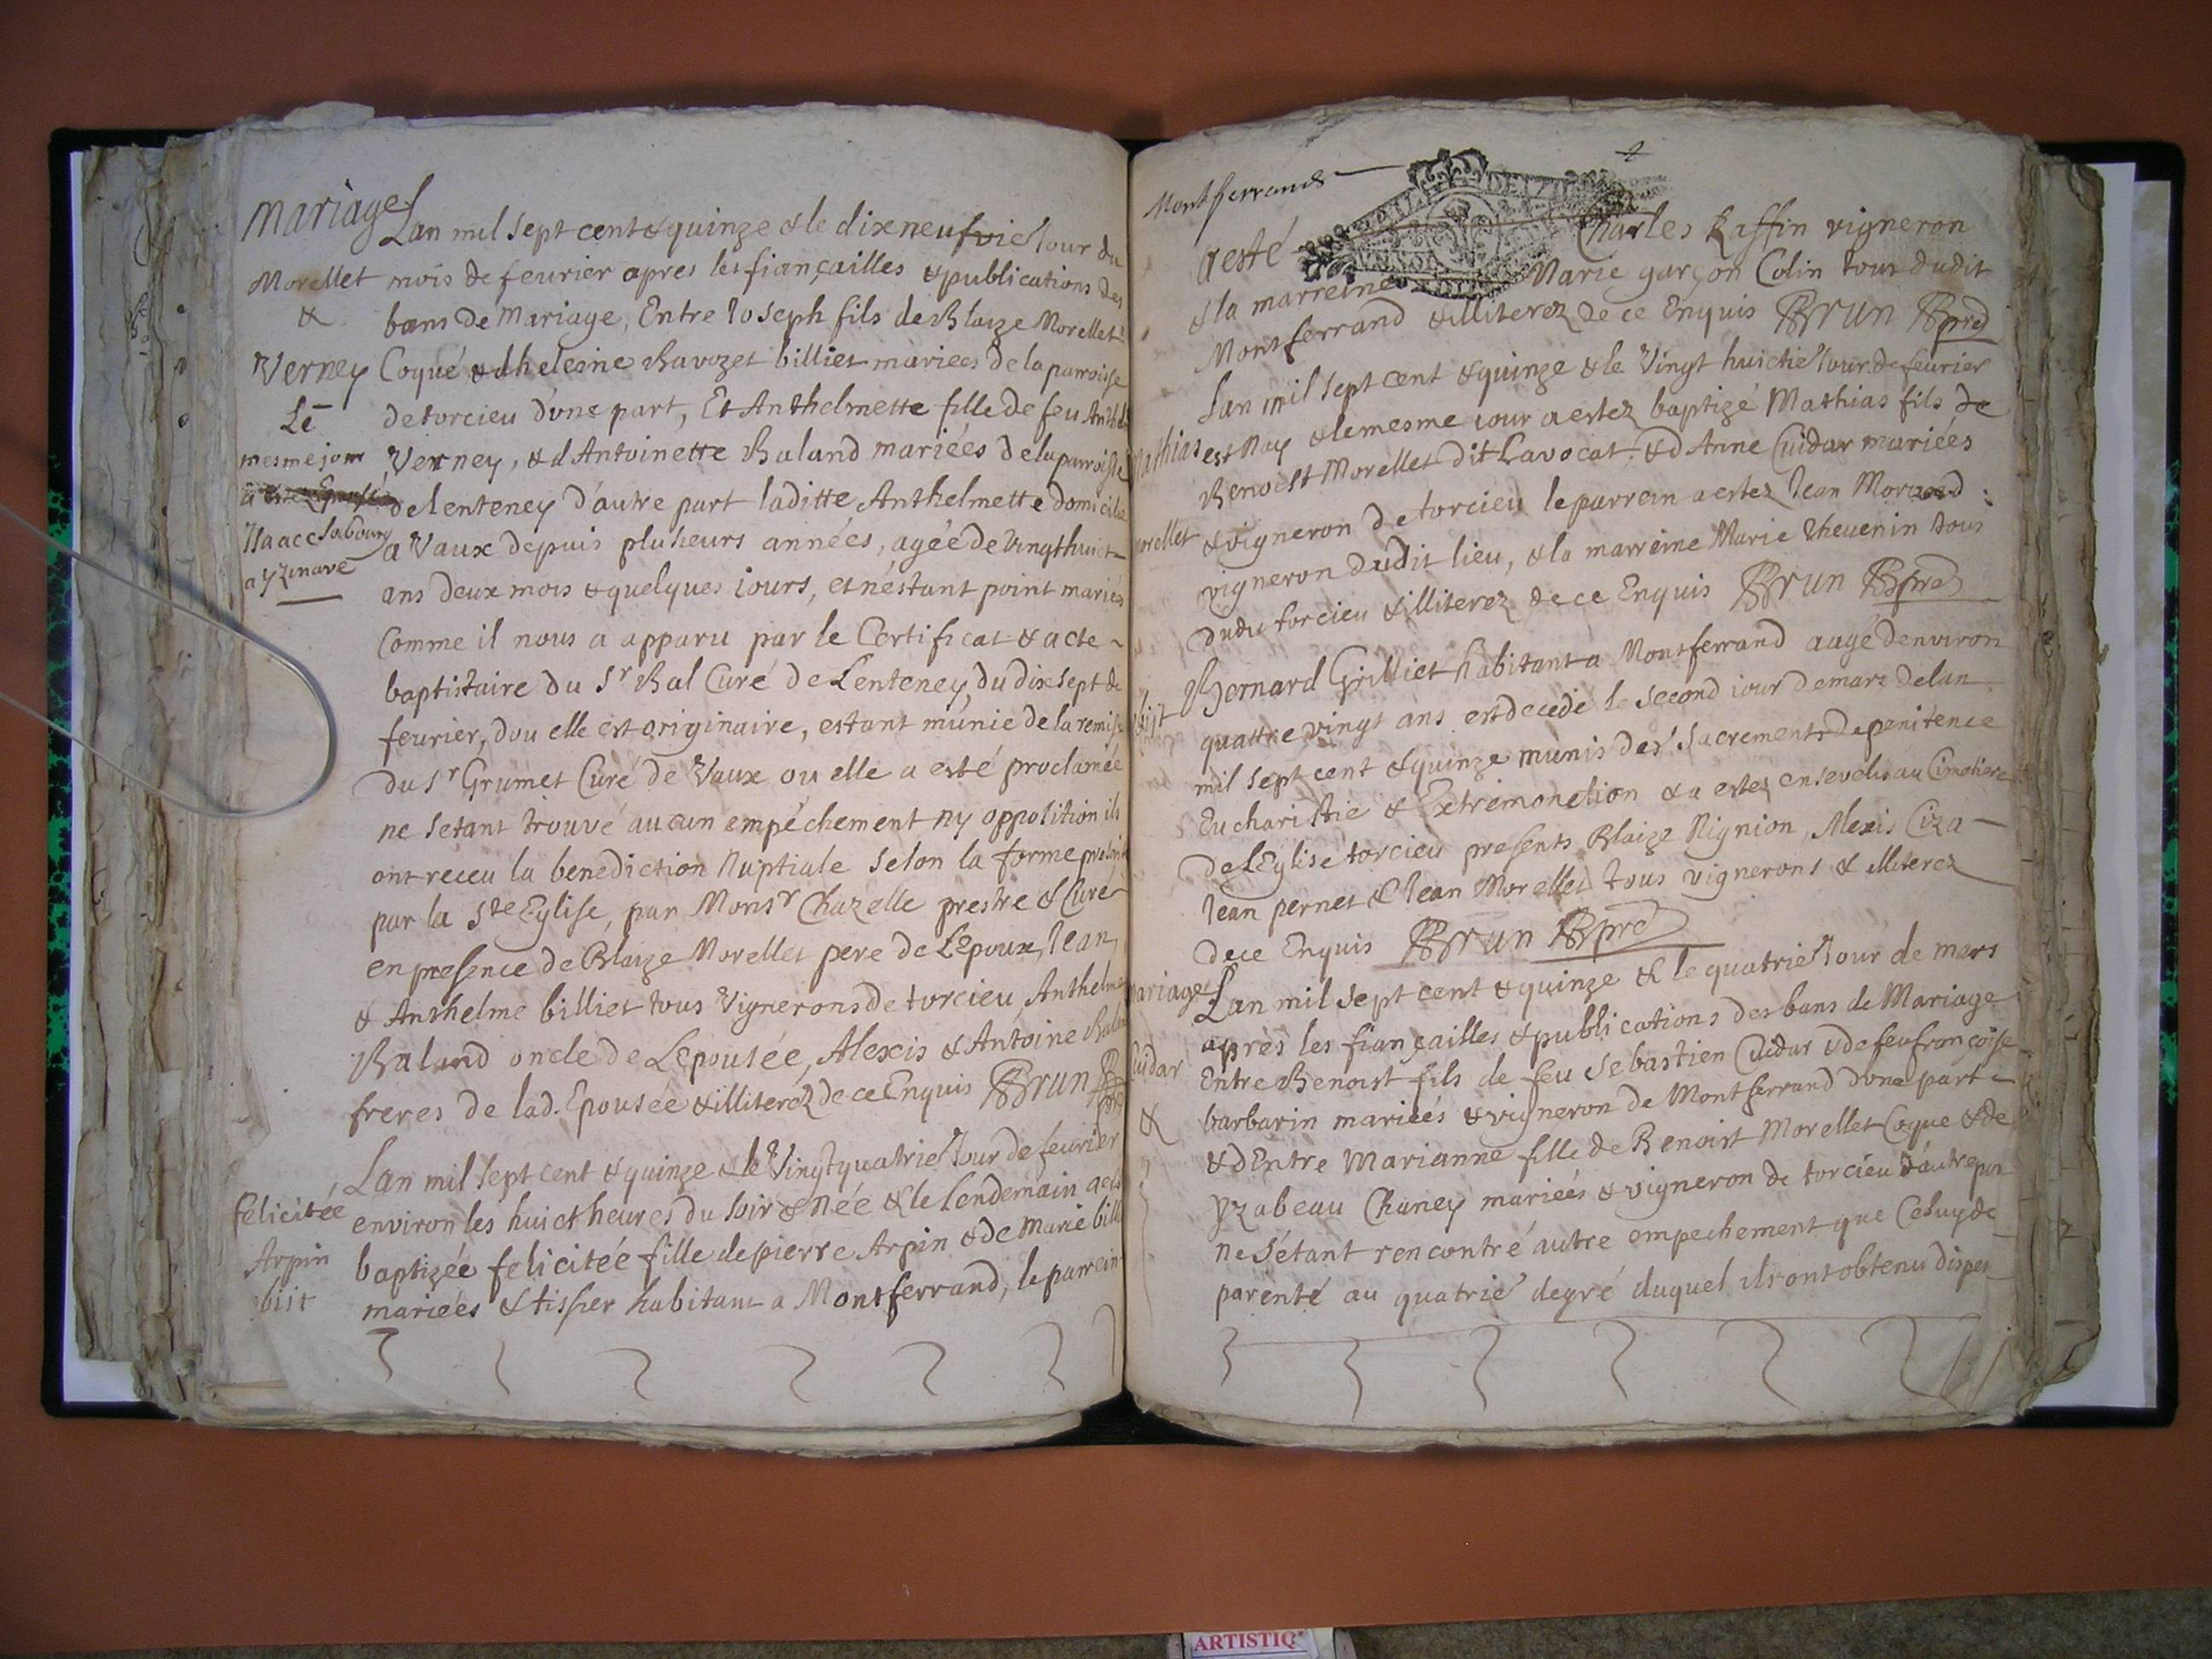 Mariage
Morellet
&
Verney
Le
mesme jour
Isaac Chabouy
a yzinave
Lan mil sept cent & quinze & le dixneufvie Jour du
mois de feurier apres les fiançailles & publications des
bans de Mariage, Entre Joseph fils de Blaize Morellet
Coqué & dheleine Ravozet billiet mariees de la parroisse
de torcieu d'une part, Et Anthelmette fille de feu Anthel
Verney, & d Antoinette Baland mariées de la parroisse
de lenteney d'autre part laditte Anthelmette domicilie
a Vaux depuis plusieurs années, agée de Vingthuict
ans deux mois & quelques iours, et n'estant point mariés
Comme il nous a apparu par le Certificat & acte
baptistaire du Sr Bal Curé de Lenteney du dix sept de
feurier, dou elle est originaire, estant munie de la remise
du Sr Grumet Curé de Vaux ou elle a esté proclamée
ne setant trouvé aucun empéchement ny oppolition ils
ont receu la benediction Nuptiale selon la forme prescrit
par la Ste Eglise, par Monsr Chazelle prestre & Curé
en presence de Blaize Morellet pere de Lepoux, Jean
& Anthelme billiet tous Vignerons de torcieu, Anthelme
Baland oncle de Lepousée, Alexis & Antoine Balan
freres de lad. Epousée & illiteréz de ce Enquis BBrun Bpre
felicitée
Arpin
biit
Lan mil sept cent & quinze & le Vingtquatrie Jour de feurier
environ les huict heures du soir & Née & le lendemain a es
baptizée felicitée fille de pierre Arpin & de Marie bill
mariées & tissier habitant a Montferrand, le parrein
Montferrand
a esté Charles Raffin vigneron
& la marreine Marie garçon Colin tous dudit
Montferrand & illiterez de ce Enquis BBrun Bpre
Mathias
orellet
Lan mil sept cent & quinze & le Vingt huictie Jour de feurier
est Nay & le mesme iour a estez baptizé Mathias fils de
Benoist Morellet dit Lavocat & d Anne Cuidar mariées
& vigneron de torcieu le parrein a estez Jean Morand
vigneron dudit lieu, & la marreine Marie thevenin tous
dudit torcieu & illiterez de ce Enquis BBrun Bpre
Bernard Grilliet habitant a Montferrand aagé denviron
quattre vingt ans est decedé le second iour de mars de lan
mil sept cent & quinze munis des Sacrements de penitence
Eucharistie & Extremonction & a estez ensevelis au Cimetiere
de lEglise torcieu presents Blaize Nignion, Alexis Ciza
Jean pernet & Jean Morellet tous vignerons & illiterez
de ce Enquis BBrun Bpre
ariage
Cuidar
&
Lan mil sept cent & quinze & le quatrie Jour de mars
apres les fiançailles & publications des bans de Mariage
Entre Benoist fils de feu Sebastien Cuidar & de feu françoise
barbarin mariées & vigneron de Montferrand dune part
& d Entre Marianne fille de Benoist Morellet Coque & de
Yzabeau Chaney mariées & vigneron de torcieu d'autre par
ne s'étant rencontré autre empechement que Celuy de
parenté au quatrie degré duquel ils ont obtenu dispen
ARTISTIQ